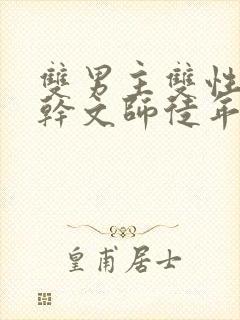 雙男主雙性
幹文師徒年
皇甫居士